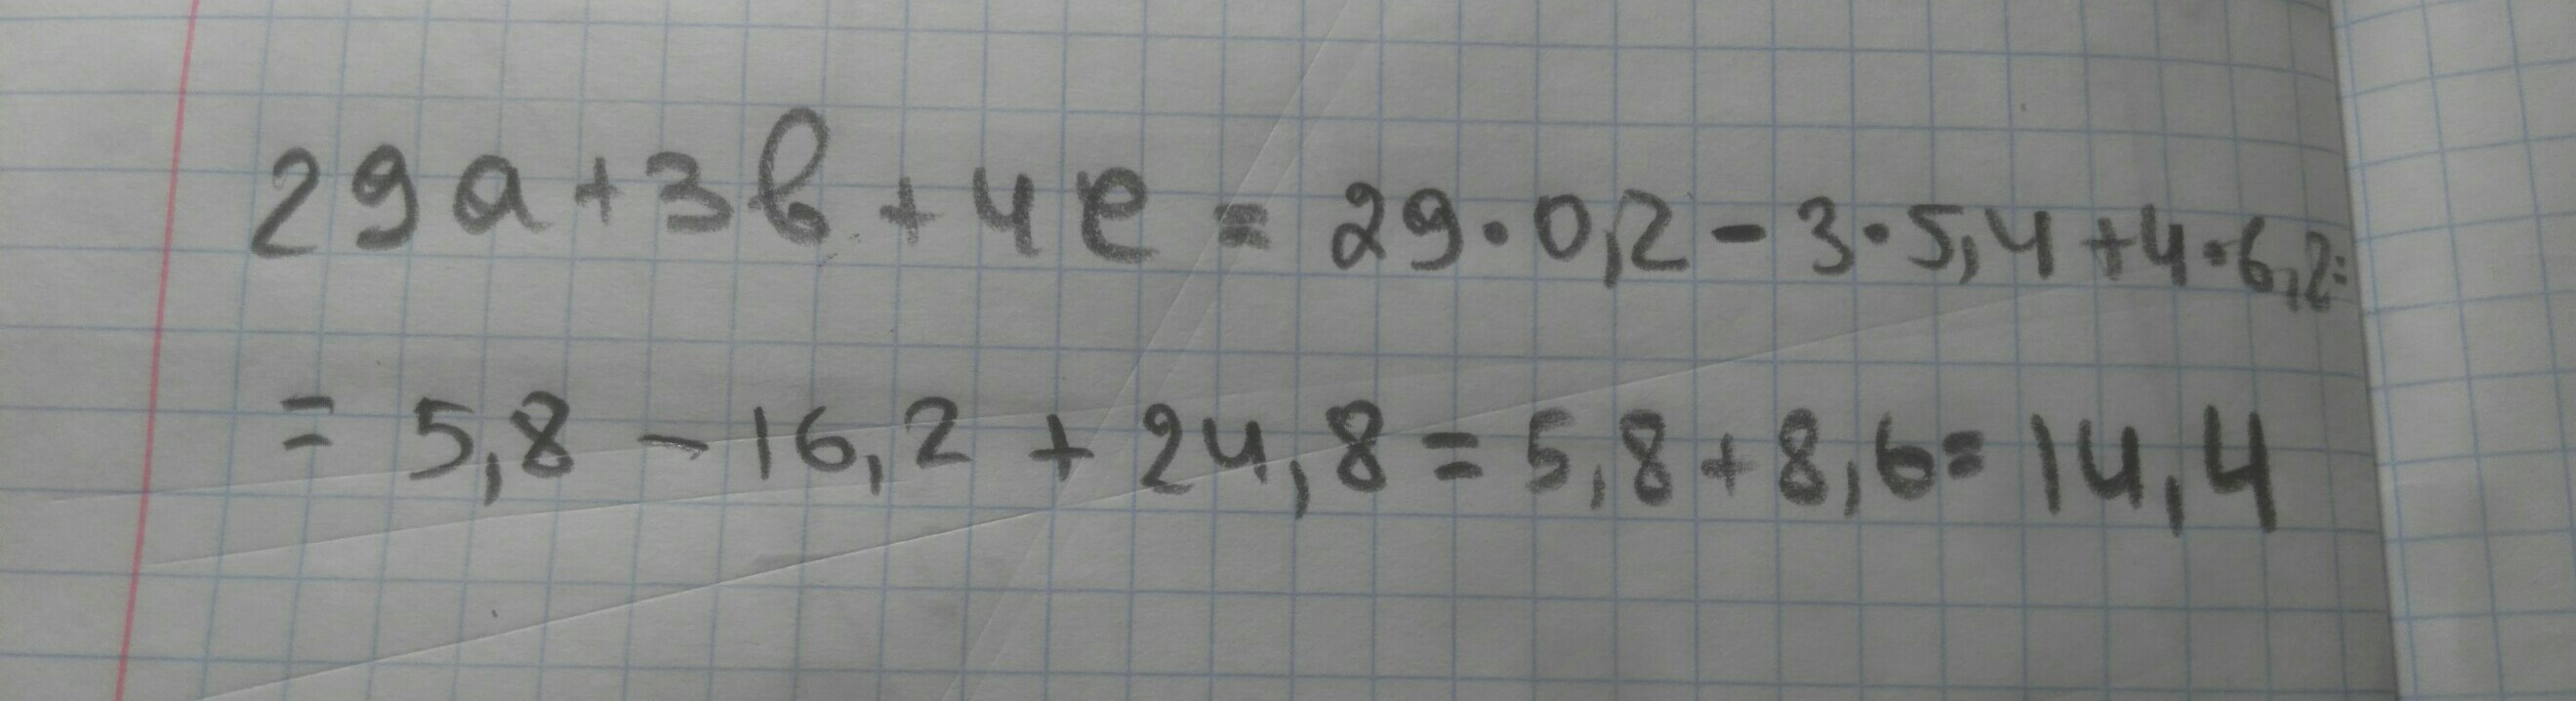 29a+3b+4e=29·0,2-3·5,4+4·6,2=
=5,8-16,2+24,8=5,8+8,6=14,4